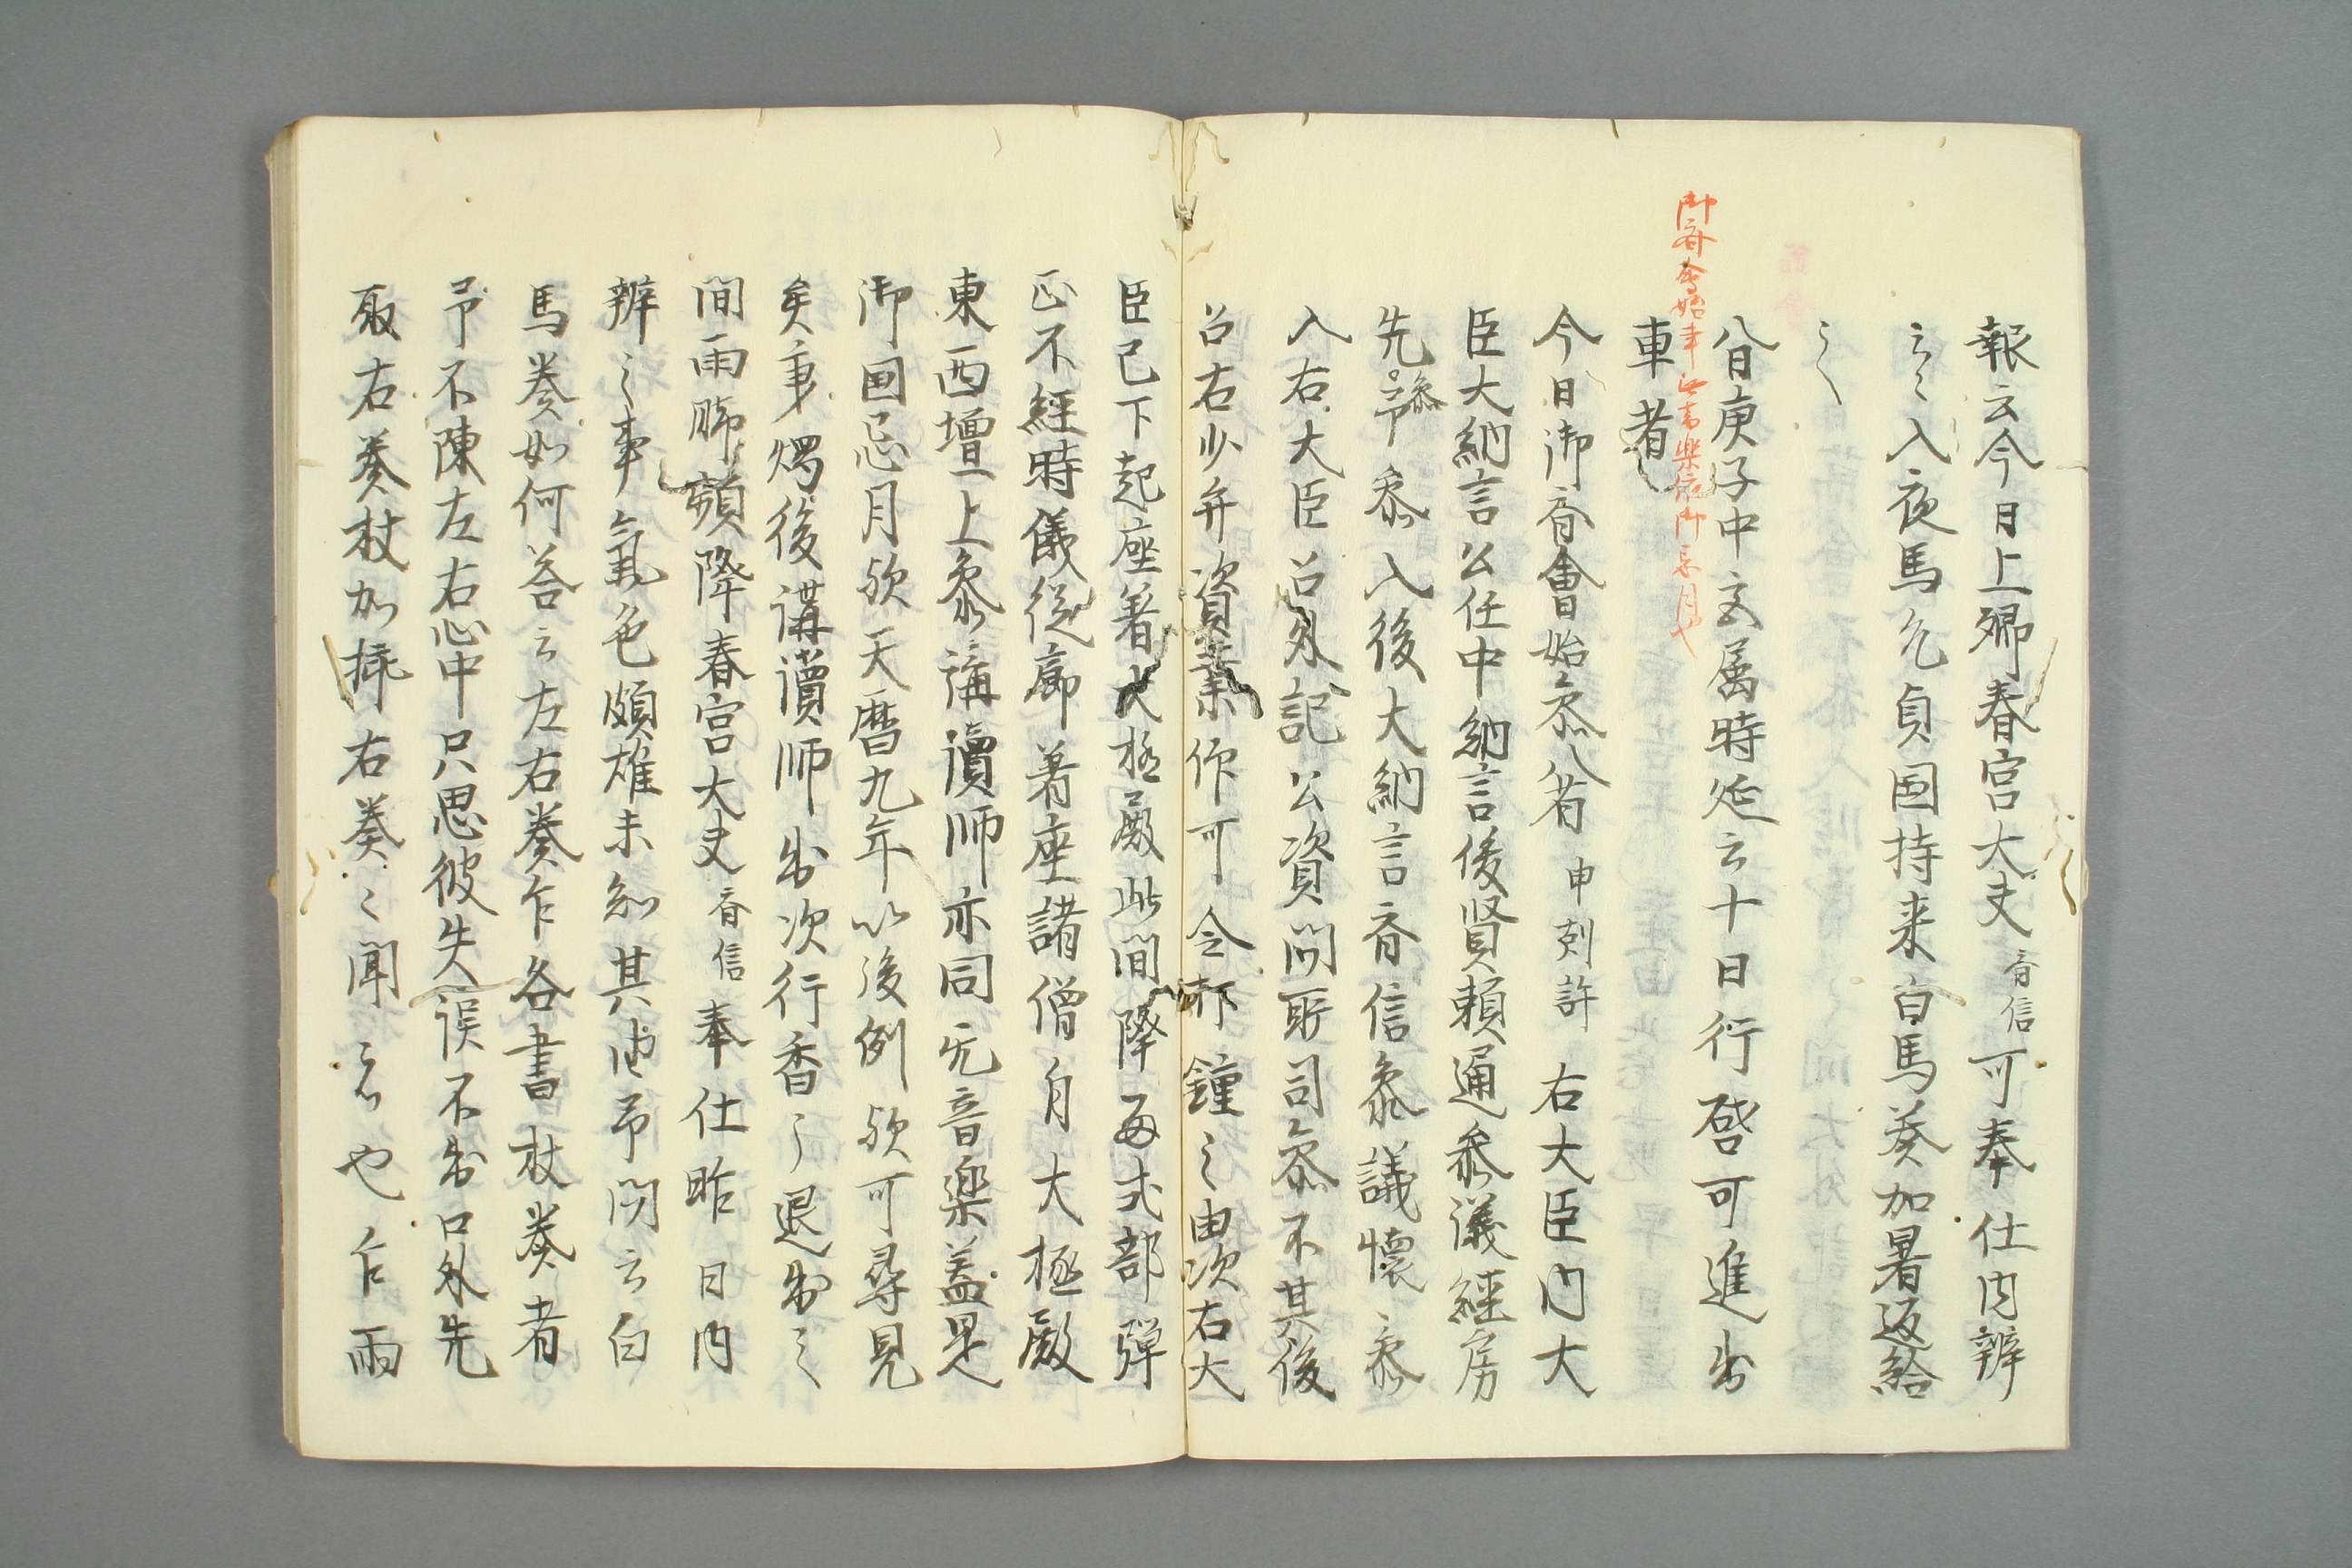 報云今日上卿春宮大夫斉信可奉仕内辨
云々入夜馬允貞国持来白馬奏加署返給
之〱
御斉会始事無音楽依御忌月也
八日庚子中文属時延云十日行啓可進出
車者
今日御斉會始参八省申剋許右大臣内大
臣大納言公任中納言俊賢頼通参議経房
先参予参入後大納言斉信参議懐平参
入右大臣召外記公資問所司参不其後
召右少弁資業仰可令打鐘之由次右大
臣已下起座著大極殿此間降雨式部弾
正不経時儀従廊著座諸僧自大極殿
東西壇上参講讀師亦同无音楽蓋是
御国忌月歟天暦九年以後例歟可尋見
矣秉燭後講讀師出次行香了退出之
間雨脚頻降春宮大夫斉信奉仕昨日内
辨之事氣色頗雄未知其由予問云白
馬奏如何答云左右奏乍各書杖奏者
予不陳左右心中只思彼失誤不出口外先
取右奏杖加挿右奏々聞云々也乍雨